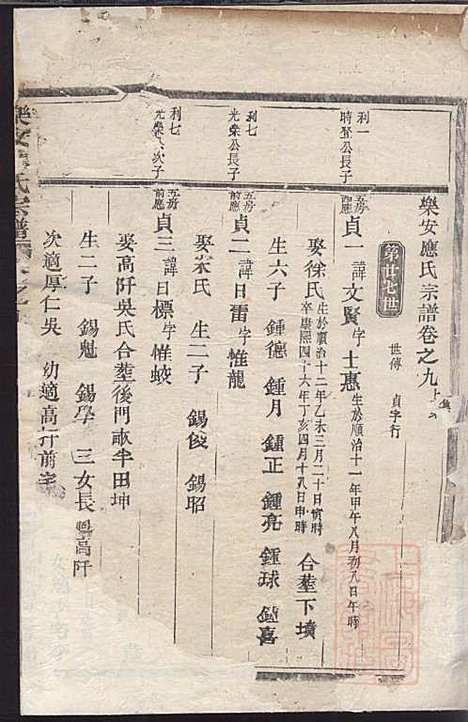 樂安應氏宗譜卷之九上
世傳 貞字行
第廿七世
利一
時登公長子
貞一 諱文賢字士惠 生於順治十一年甲午八月初八日午時
娶徐氏 生於順治十二年乙未三月二十日寅時 卒康熙四十六年丁亥四月十八日申時 合塟下墳
生六子 鍾德 鍾月 鍾正 鍾亮 鍾球 鍾喜
利七
光榮公長子
五房前應
貞二 諱日雷字惟龍
娶 氏 生二子 錫俊 錫昭
利七
光榮公次子
五房前應
貞三 諱日標字惟蛟
娶高阡吳氏合塟後門畝半田坤
生二子 錫魁 錫學 三女長 高阡
次適厚仁吳 幼適高阡前宅